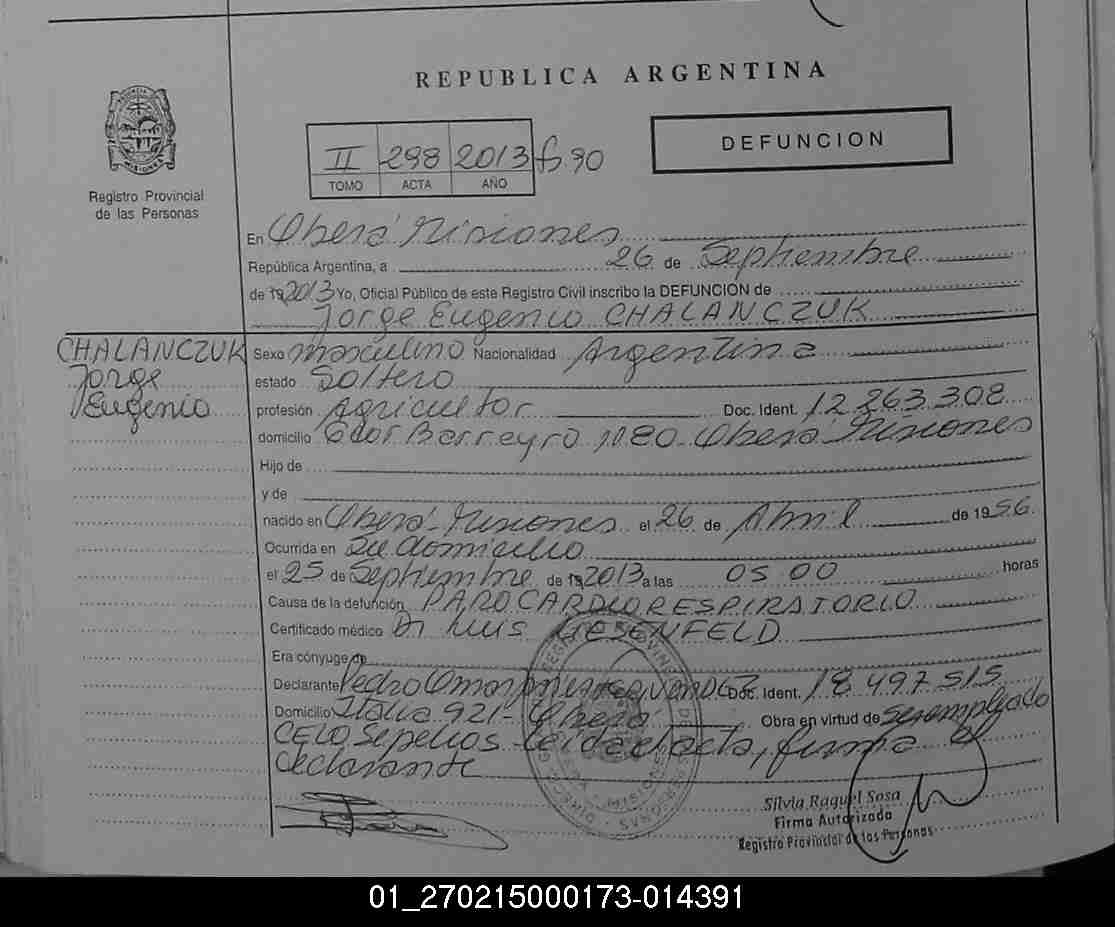 REPUBLICA ARGENTINA
Registro Provincial
de las Personas
II 298 2013 fº90
TOMO ACTA AÑO
DEFUNCION
En Oberá Misiones
República Argentina, a 26 de Septiembre
de 192013 Yo, Oficial Público de este Registro Civil inscribo la DEFUNCION de
Jorge Eugenio CHALANCZUK
CHALANCZUK
Jorge
Eugenio
Sexo masculino Nacionalidad Argentina
estado Soltero
profesión Agricultor Doc. Ident. 12.263.308
domicilio Gdor Barreyro 1080 - Oberá Misiones
Hijo de
y de
nacido en Oberá - Misiones el 26 de Abril de 1956
Ocurrida en Su domicilio
el 25 de Septiembre de 192013 a las 05 00 horas
Causa de la defunción PARO CARDIORESPIRATORIO
Certificado médico Dr LUIS LIESENFELD
Era cónyuge de
Declarante Pedro Omar Doc. Ident. 18.497.515
Domicilio Italia 921 - Oberá Obra en virtud de ser empleado
CELO Sepelios - Leída el acta, firma el
declarante
Silvia Raquel Sosa
Firma Autorizada
Registro Provincial de las Personas
01_270215000173-014391